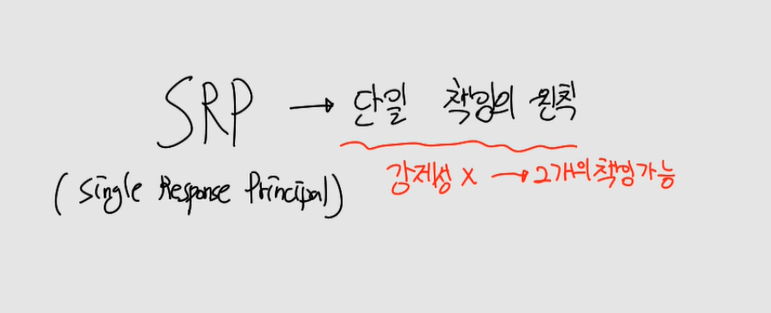 SRP → 단일 책임의 원칙
(Single Response Principal)
강제성 X → 2개의 책임가능